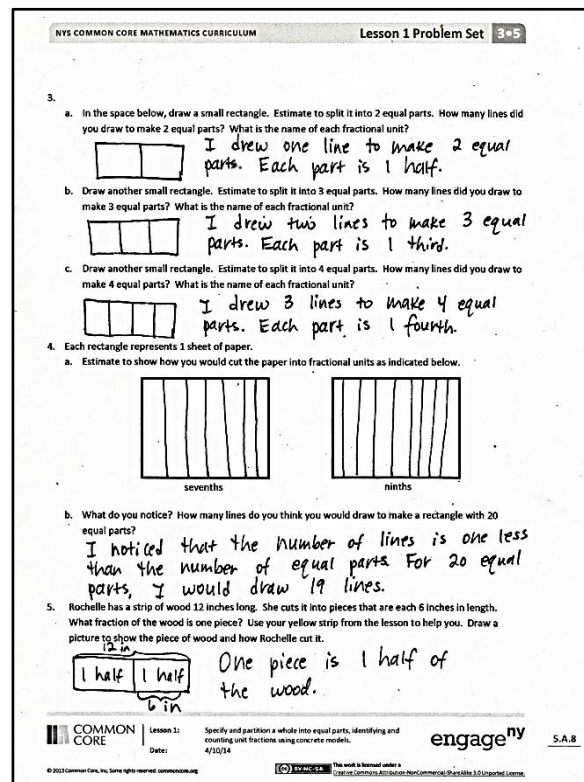 NYS COMMON CORE MATHEMATICS CURRICULUM
Lesson 1 Problem Set 3•5
3.
a. In the space below, draw a small rectangle. Estimate to split it into 2 equal parts. How many lines did
you draw to make 2 equal parts? What is the name of each fractional unit?
I drew one line to make 2 equal
parts. Each part is 1 half.
b. Draw another small rectangle. Estimate to split it into 3 equal parts. How many lines did you draw to
make 3 equal parts? What is the name of each fractional unit?
I drew two lines to make 3 equal
parts. Each part is 1 third.
c. Draw another small rectangle. Estimate to split it into 4 equal parts. How many lines did you draw to
make 4 equal parts? What is the name of each fractional unit?
I drew 3 lines to make 4 equal
parts. Each part is 1 fourth.
4. Each rectangle represents 1 sheet of paper.
a. Estimate to show how you would cut the paper into fractional units as indicated below.
sevenths
ninths
b. What do you notice? How many lines do you think you would draw to make a rectangle with 20
equal parts?
I noticed that the number of lines is one less
than the number of equal parts. For 20 equal
parts, I would draw 19 lines.
5. Rochelle has a strip of wood 12 inches long. She cuts it into pieces that are each 6 inches in length.
What fraction of the wood is one piece? Use your yellow strip from the lesson to help you. Draw a
picture to show the piece of wood and how Rochelle cut it.
12 in
1 half 1 half
6 in
One piece is 1 half of
the wood.
COMMON
CORE
Lesson 1:
Specify and partition a whole into equal parts, identifying and
counting unit fractions using concrete models.
Date:
4/10/14
engage ny
5.A.8
© 2013 Common Core, Inc. Some rights reserved. commoncore.org
CC BY-NC-SA
This work is licensed under a
Creative Commons Attribution-NonCommercial-ShareAlike 3.0 Unported License.